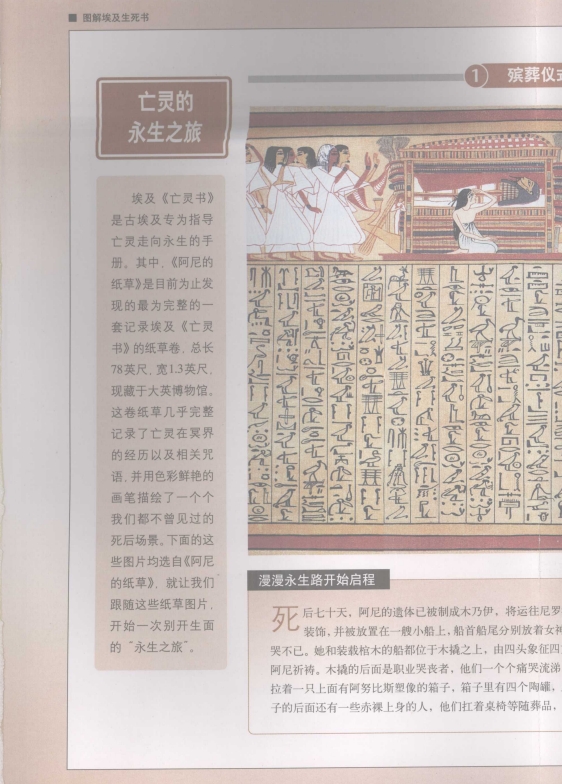 图解埃及生死书
亡灵的
永生之旅
埃及《亡灵书》
是古埃及专为指导
亡灵走向永生的手
册。其中，《阿尼的
纸草》是目前为止发
现的最为完整的一
套记录埃及《亡灵
书》的纸草卷，总长
78英尺，宽1.3英尺，
现藏于大英博物馆。
这卷纸草几乎完整
记录了亡灵在冥界
的经历以及相关咒
语，并用色彩鲜艳的
画笔描绘了一个个
我们都不曾见过的
死后场景。下面的这
些图片均选自《阿尼
的纸草》，就让我们
跟随这些纸草图片，
开始一次别开生面
的“永生之旅”。
1 殡葬仪
漫漫永生路开始启程
死后七十天，阿尼的遗体已被制成木乃伊，将运往尼罗
装饰，并被放置在一艘小船上，船首船尾分别放着女神
哭不已。她和装载棺木的船都位于木橇之上，由四头象征四
阿尼祈祷。木橇的后面是职业哭丧者，他们一个个痛哭流涕
拉着一只上面有阿努比斯塑像的箱子，箱子里有四个陶罐，
子的后面还有一些赤裸上身的人，他们扛着桌椅等随葬品，